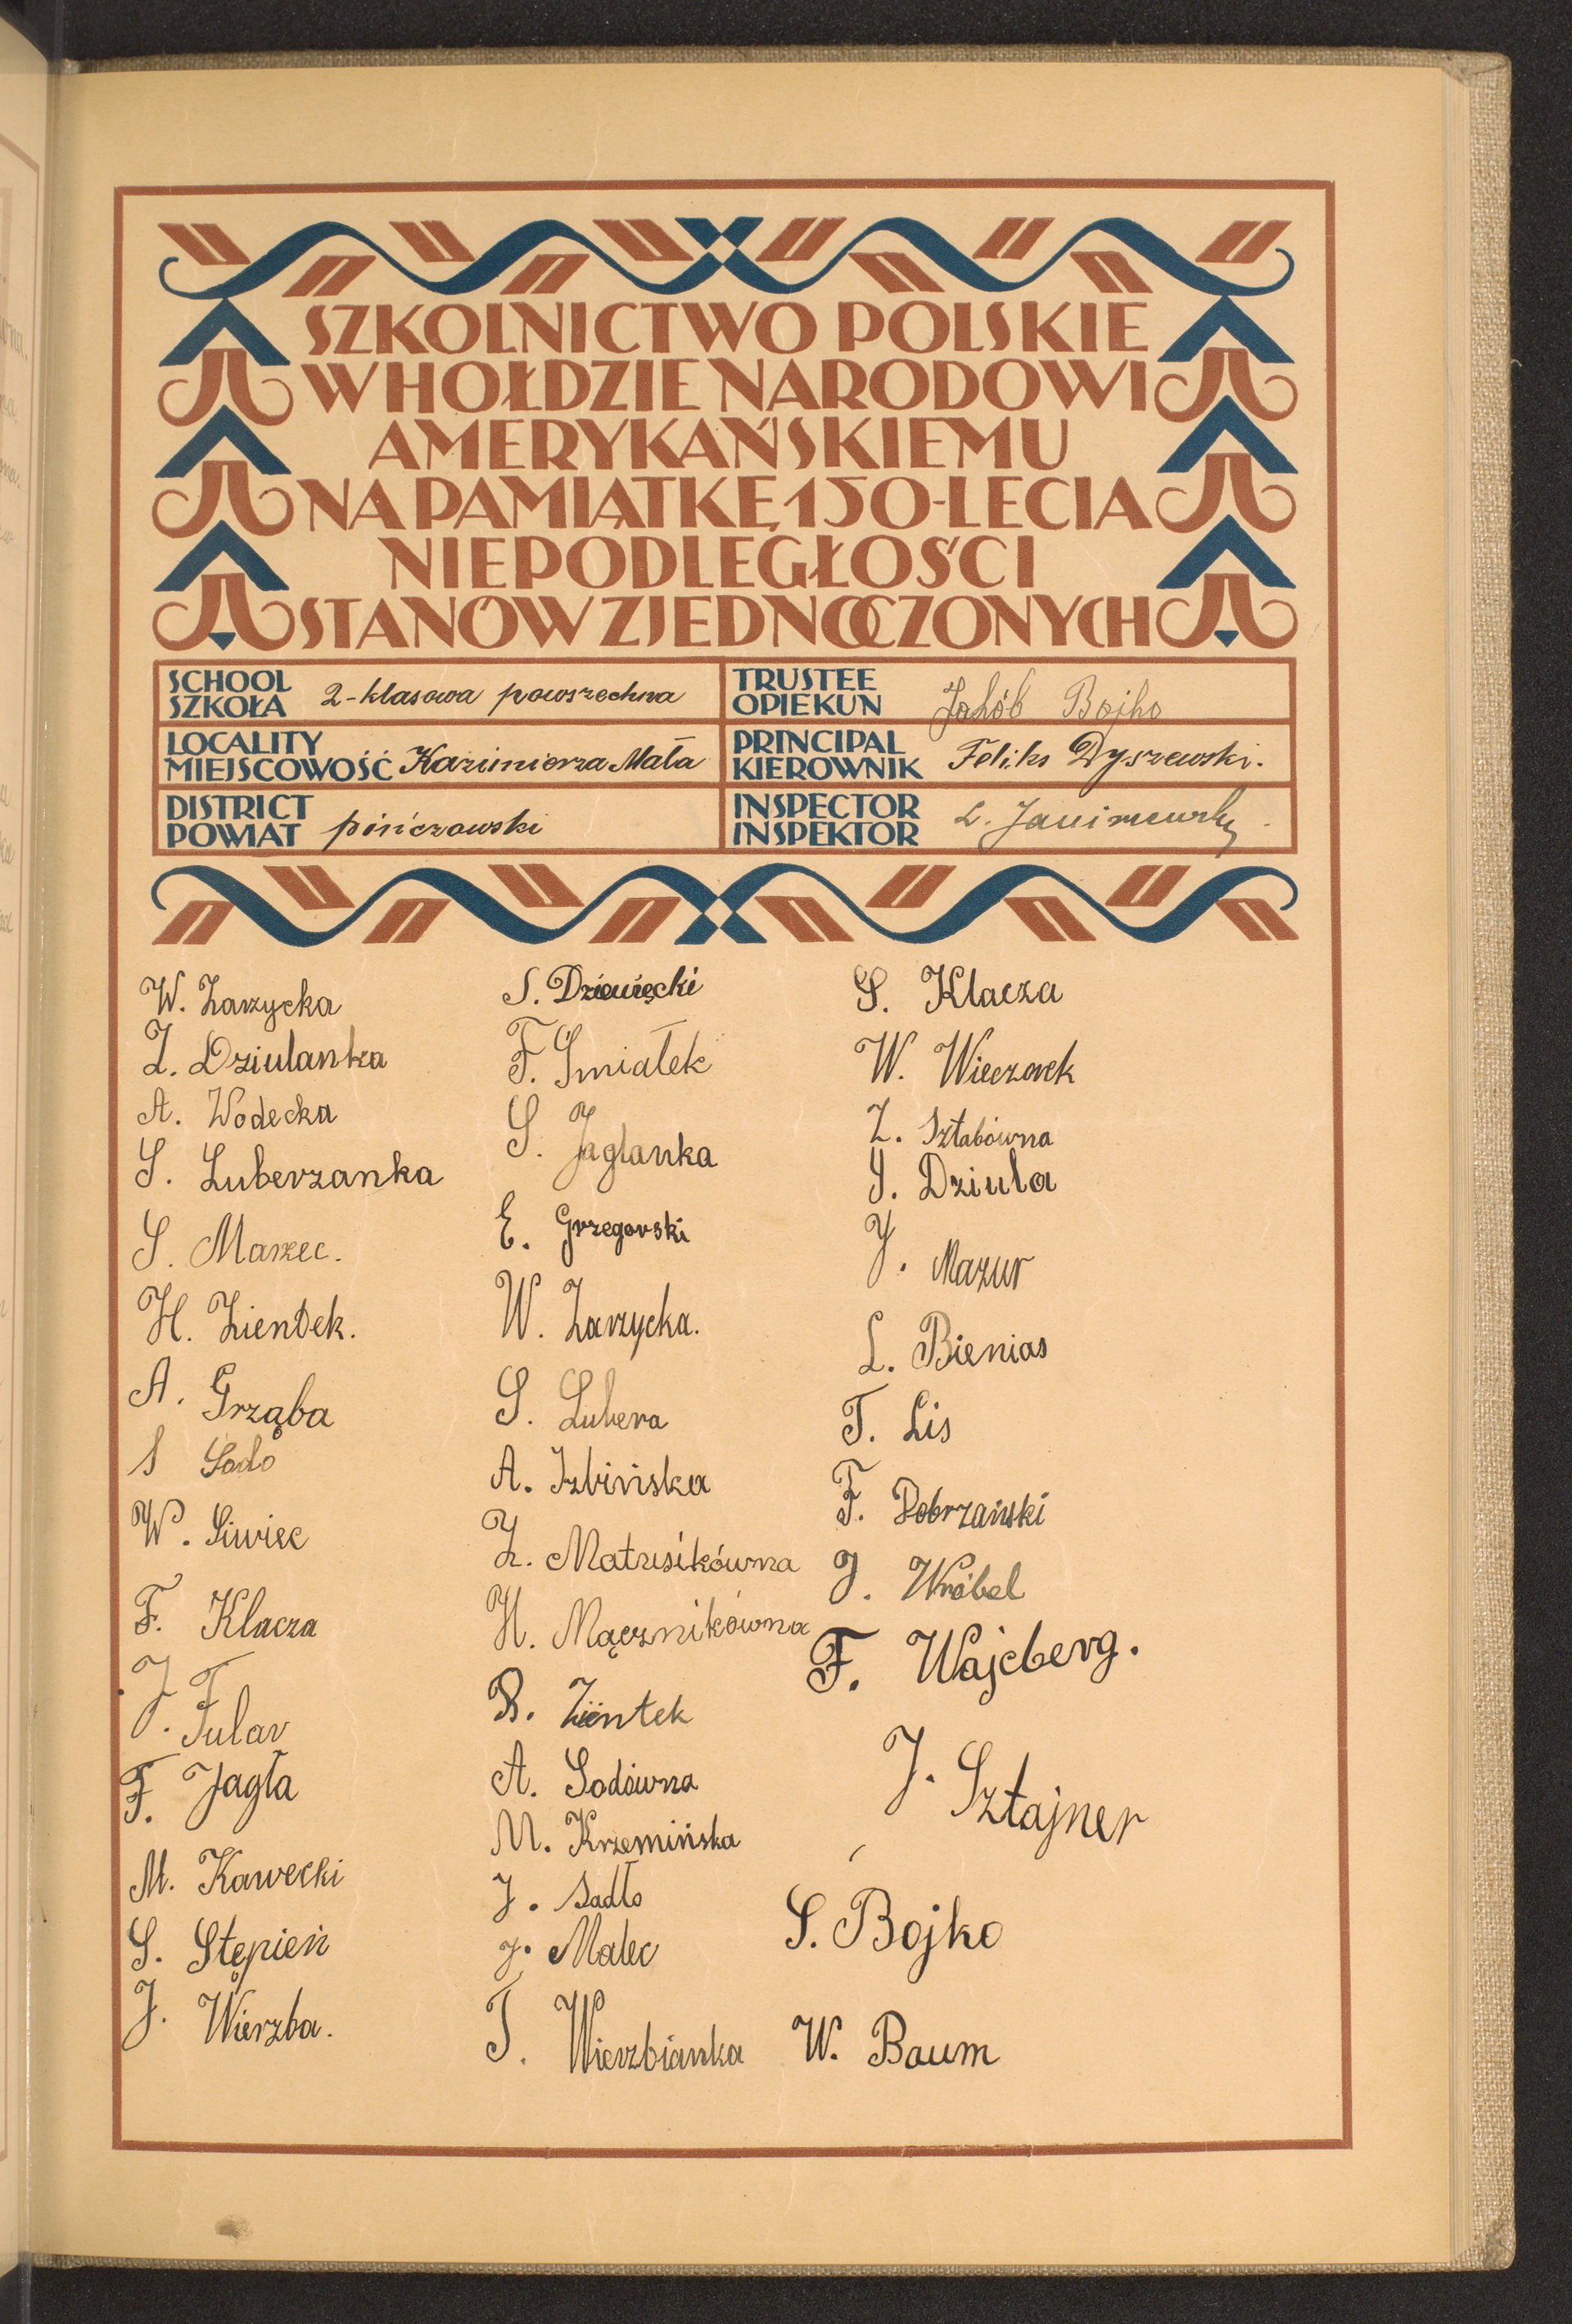 SZKOLNICTWO POLSKIE
W HOŁDZIE NARODOWI
AMERYKAŃSKIEMU
NA PAMIĄTKĘ 150-LECIA
NIEPODLEGŁOŚCI
STANÓW ZJEDNOCZONYCH
SCHOOL
SZKOŁA 2-klasowa powszechna
TRUSTEE
OPIEKUN Jakób Bojko
LOCALITY
MIEJSCOWOŚĆ Kazimierza Mała
PRINCIPAL
KIEROWNIK Feliks Dyszewski.
DISTRICT
POWIAT pińczowski
INSPECTOR
INSPEKTOR L.
W. Zarzycka
Z. Dziulanka
A. Wodecka
S. Luberzanka
S. Marzec.
H. Zientek.
A. Grząba
S Sado
W. Siwiec
F. Klacza
J. Fular
F. Jagła
M. Kawecki
S. Stępień
J. Wierzba.
S. Dziewięcki
F. Śmiałek
S. Jaglanka
E. Grzegorski
W. Zarzycka.
S. Lubera
A. Izbińska
Z. Matusikówna
H. Mącznikówna
R. Zientek
A. Sodówna
M. Krzemińska
J. Sadło
J. Malec
T. Wierzbianka
S. Klacza
W. Wieczorek
Z. Sztabówna
J. Dziula
J. Mazur
L. Bienias
T. Lis
F. Dobrzański
J. Wróbel
F. Wajcberg.
J. Sztajner
S. Bojko
W. Baum